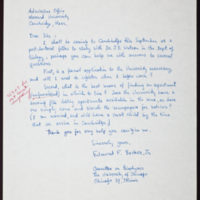 Admissions Office
Harvard University
Cambridge, Mass.
Dear Sirs:
I shall be coming to Cambridge this September as a
post-doctoral fellow to study with Dr. J. D. Watson in the Dept. of
Biology, perhaps you can help me with answers to several
questions.
First, is a formal application to the University necessary
and will I need to register when I arrive?
Second, what is the best means of finding an apartment
(unfurnished) in which to live? Does the University have a
housing file listing apartments available in the area, or does
one simply come and search the newspapers for notices?
(I am married, and will have a small child by the time
that we arrive in Cambridge.)
Thank you for any help you can give me.
Sincerely yours,
Edward
Committee on Biophysics
The University of Chicago
Chicago 37, Illinois